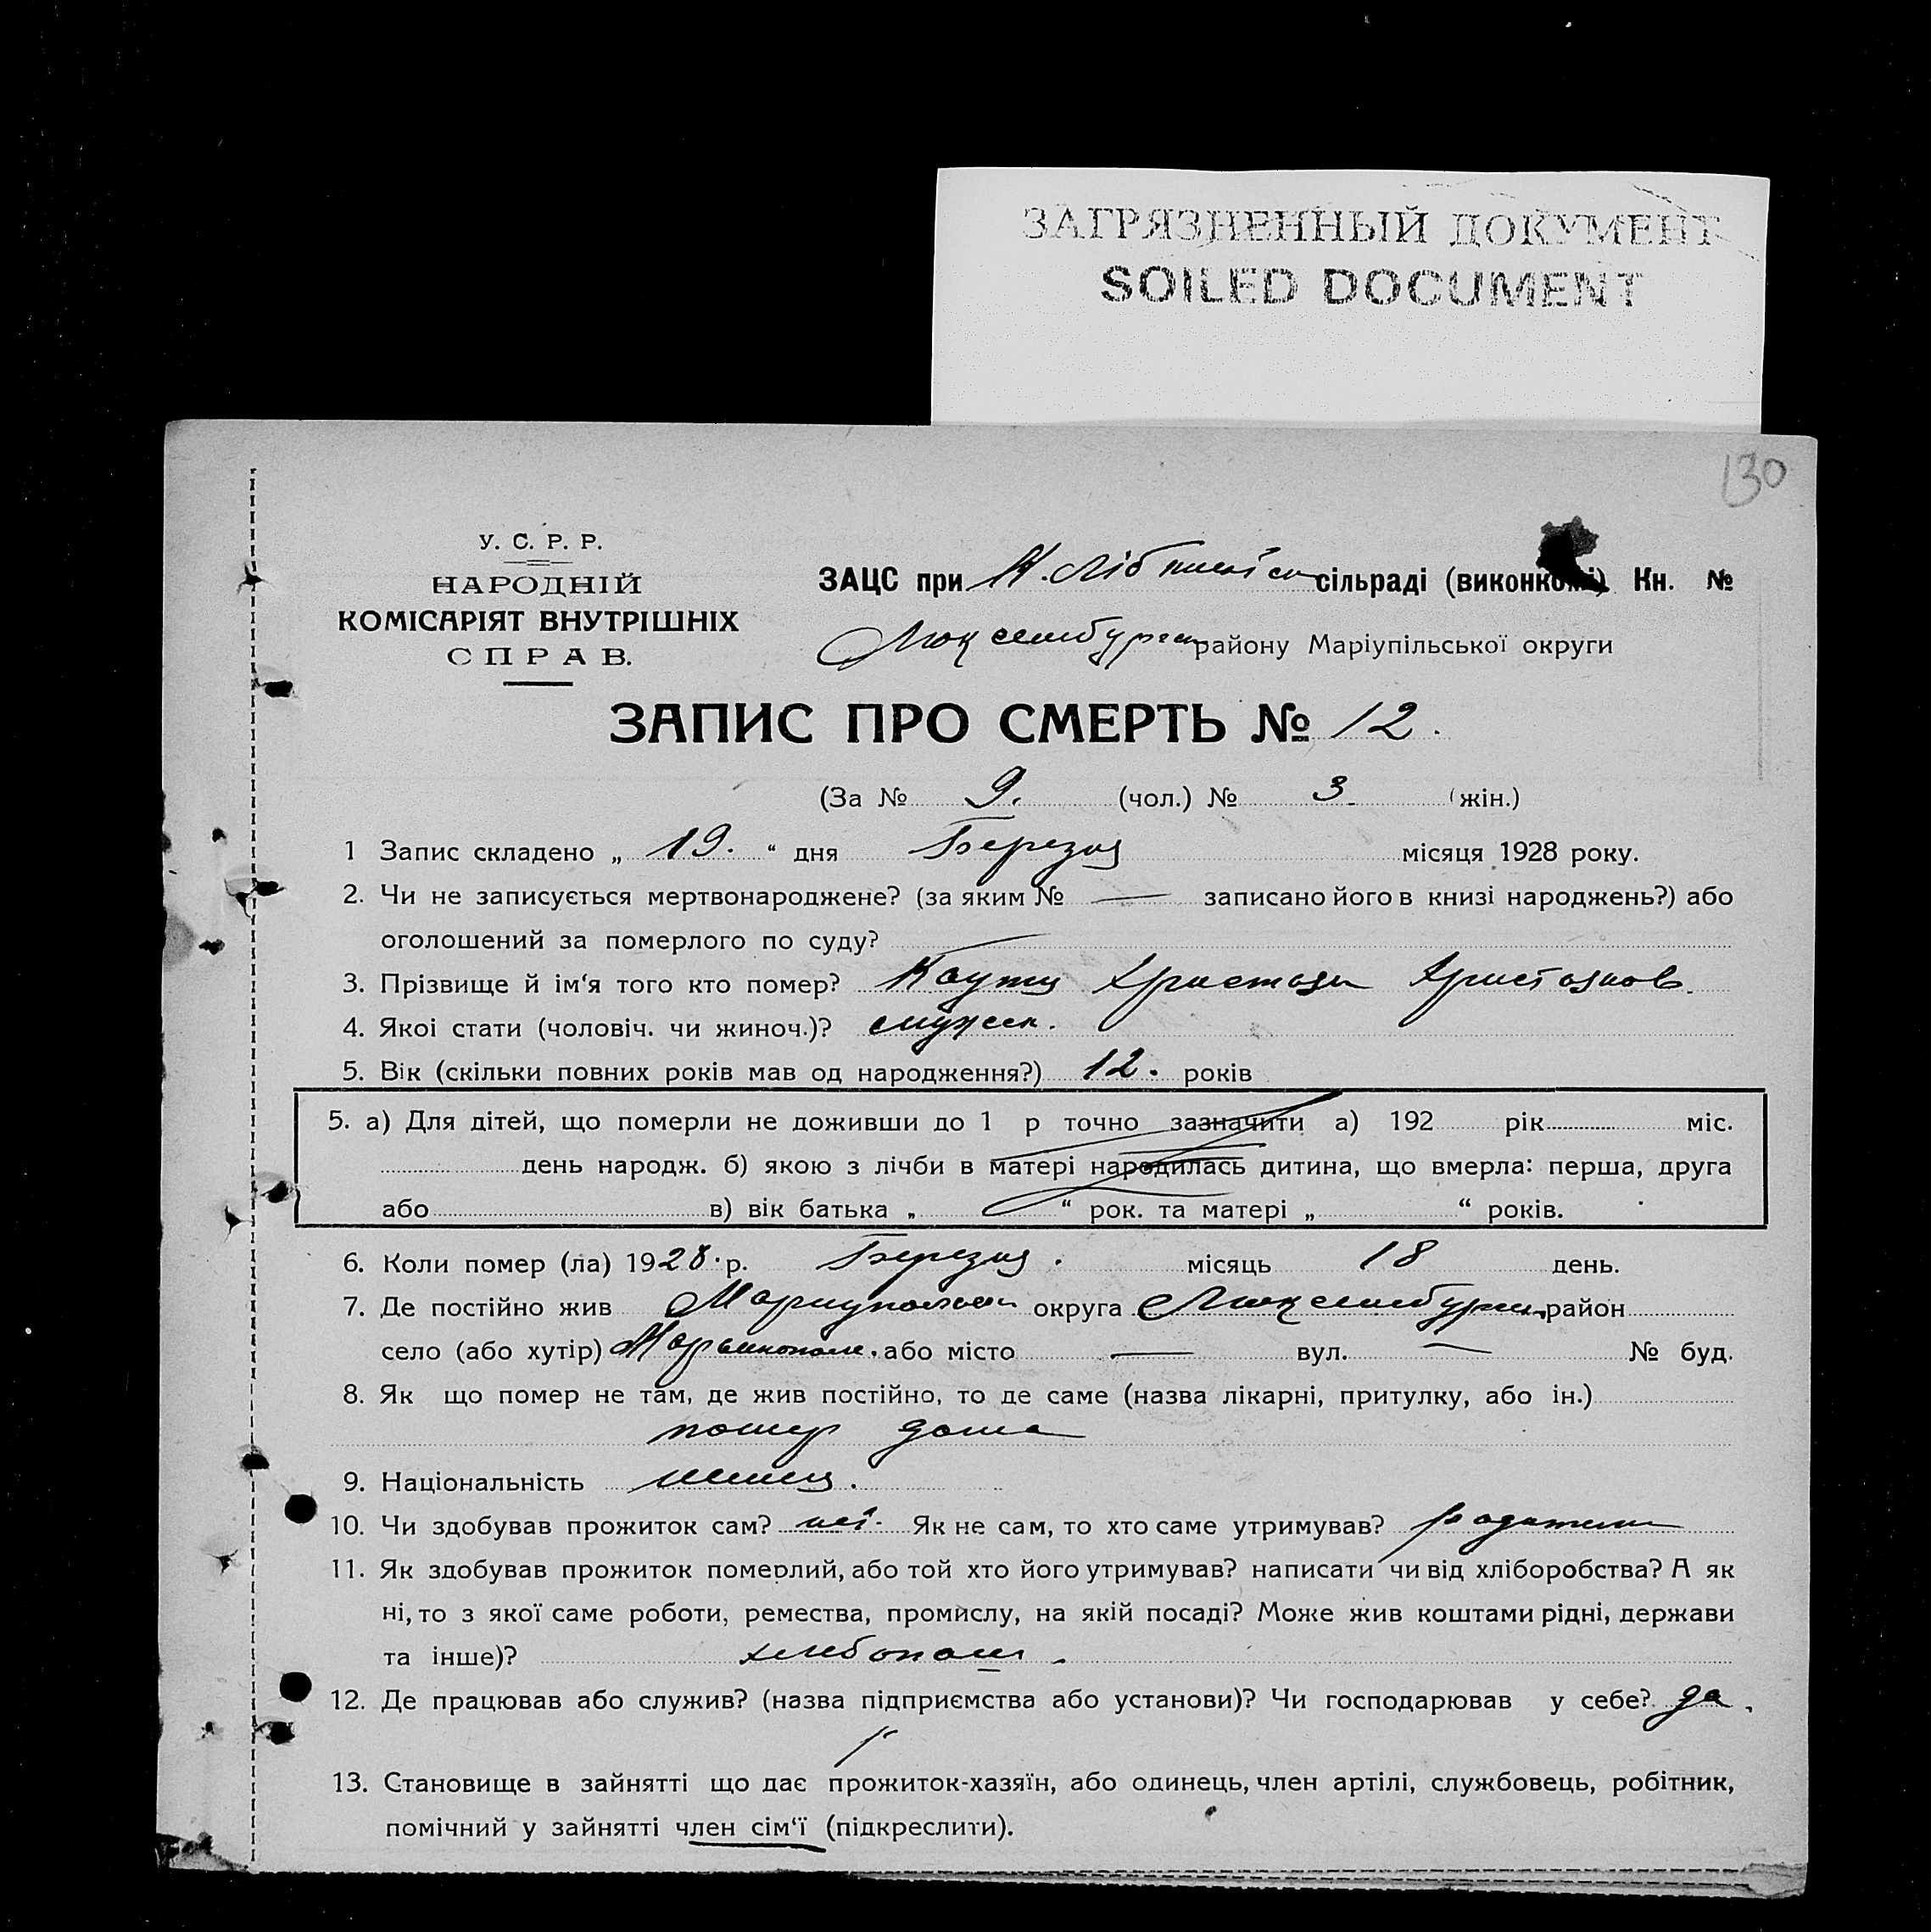 ЗАГРЯЗНЕННЫЙ ДОКУМЕНТ
SOILED DOCUMENT
130
У. С. Р. Р.
НАРОДНІЙ
КОМІСАРІЯТ ВНУТРІШНІХ
СПРАВ.
ЗАЦС при сільраді (виконкомі) Кн. №
району Маріупільської округи
ЗАПИС ПРО СМЕРТЬ № 12.
(За № 9. (чол.) № 3 (жін.)
1 Запис складено „ 19. “ дня Березня місяця 1928 року.
2. Чи не записується мертвонароджене? (за яким № — записано його в книзі народжень?) або
оголошений за померлого по суду?
3. Прізвище й ім‘я того кто помер? Христиан
4. Якоі стати (чоловіч. чи жиноч.)? мужеск.
5. Вік (скільки повних років мав од народження?) 12. років
5. а) Для дітей, що померли не доживши до 1 р точно зазначити а) 192 рік міс.
день народж. б) якою з лічби в матері народилась дитина, що вмерла: перша, друга
або в) вік батька „ “ рок. та матері „ “ років.
6. Коли помер (ла) 1928. р. Березня. місяць 18 день.
7. Де постійно жив округа район
село (або хутір) або місто — вул. — № буд.
8. Як що помер не там, де жив постійно, то де саме (назва лікарні, притулку, або ін.)
помер дома
9. Національність немец.
10. Чи здобував прожиток сам? ні. Як не сам, то хто саме утримував? родители
11. Як здобував прожиток померлий, або той хто його утримував? написати чи від хліборобства? А як
ні, то з якої саме роботи, ремества, промислу, на якій посаді? Може жив коштами рідні, держави
та інше)?
12. Де працював або служив? (назва підприємства або установи)? Чи господарював у себе? да.
13. Становище в зайнятті що дає прожиток-хазяїн, або одинець, член артілі, службовець, робітник,
помічний у зайнятті член сім‘ї (підкреслити).